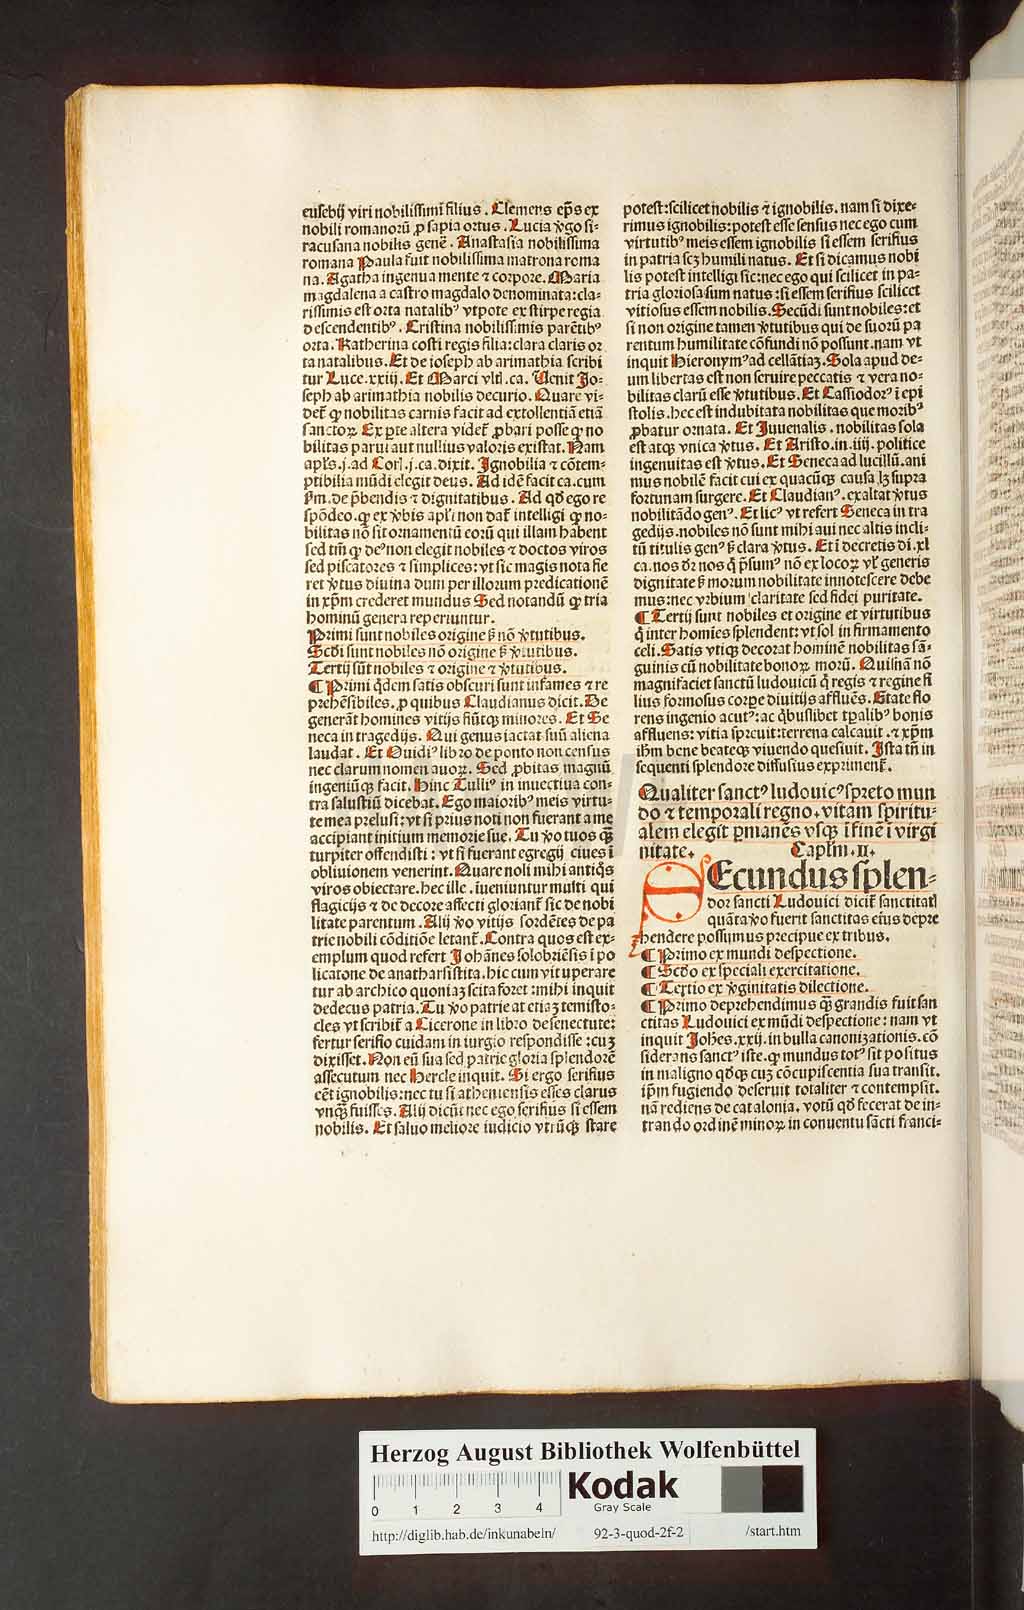 eusebij viri nobilissimi filius. Clemens ep̄s ex
nobili romanorū ꝓsapia ortus. Lucia v̄go si-
racusana nobilis genē. Anastasia nobilissima
romana Paula fuit nobilissima matrona roma
na. Agatha ingenua mente ⁊ corpore. Maria
magdalena a castro magdalo denominata: cla-
rissimis est orta natalibꝰ vtpote ex stirpe regia
descendentibꝰ. Cristina nobilissimis parētibꝰ
orta. Katherina costi regis filia: clara claris or
ta natalibus. Et de ioseph ab arimathia scribi
tur Luce. xxiij. Et Marci vlt̄. ca. Uenit Jo-
seph ab arimathia nobilis decurio. Quare vi-
det̄ ꝙ nobilitas carnis facit ad extollentiā etiā
sanctoꝝ. Ex ꝑte altera videt̄ ꝓbari posse ꝙ no-
bilitas parui aut nullius valoris existat. Nam
apl̄s. j. ad Cor̄. j. ca. dixit. Ignobilia ⁊ cōtem-
ptibilia mūdi elegit deus. Ad idē facit ca. cum
ẜm. de p̄bendis ⁊ dignitatibus. Ad qd̄ ego re
spōdeo. ꝙ ex v̄bis apl̄i non dat̄ intelligi ꝙ no-
bilitas nō sit ornamentū eorū qui illam habent
sed tm̄ ꝙ deꝰ non elegit nobiles ⁊ doctos viros
sed piscatores ⁊ simplices: vt sic magis nota fie
ret v̄tus diuina dum per illorum predicationē
in xp̄m crederet mundus Sed notandū ꝙ tria
hominū genera reperiuntur.
Primi sunt nobiles origine ẜ nō v̄tutibus.
Scd̄i sunt nobiles nō origine ẜ v̄tutibus.
Tertij sūt nobiles ⁊ origine ⁊ v̄tutibus.
¶ Primi q̄dem satis obscuri sunt infames ⁊ re
prehēsibiles, ꝓ quibus Claudianus dicit. De
generāt homines vitijs fiūtqꝫ minores. Et Se
neca in tragedijs. Qui genus iactat suū aliena
laudat. Et Ouidiꝰ libro de ponto non census
nec clarum nomen auoꝝ. Sed ꝓbitas magnū
ingeniūqꝫ facit. Hinc Tulliꝰ in inuectiua con-
tra salustiū dicebat. Ego maioribꝰ meis virtu-
te mea prelusi: vt si prius noti non fuerant a me
accipiant initium memorie sue. Tu v̄o tuos qꝫ
turpiter offendisti: vt si fuerant egregij ciues ī
obliuionem venerint. Quare noli mihi antiq̄s
viros obiectare. hec ille. īueniuntur multi qui
flagicijs ⁊ de decore affecti gloriant̄ sic de nobi
litate parentum. Alij v̄o vitijs sordētes de pa
trie nobili cōditiōe letant̄. Contra quos est ex-
emplum quod refert Johānes solobriēsis ī po
licatone de anatharsistita. hic cum vituperare
tur ab archico quoniaꝫ scita foret: mihi inquit
dedecus patria. Tu v̄o patrie at etiaꝫ temisto-
cles vt scribit̄ a Cicerone in libro de senectute:
fertur serifio cuidam in iurgio respondisse: cuꝫ
dixisset. Non eū sua sed patrie gloria splendorē
assecutum nec Hercle inquit. Si ergo serifius
eēt ignobilis: nec tu si atheniensis esses clarus
vnqꝫ fuisses. Alij dicūt nec ego serifius si essem
nobilis. Et saluo meliore iudicio vtrūqꝫ stare
potest: scilicet nobilis ⁊ ignobilis. nam si dixe-
rimus ignobilis: potest esse sensus nec ego cum
virtutibꝰ meis essem ignobilis si essem serifius
in patria scꝫ humili natus. Et si dicamus nobi
lis potest intelligi sic: nec ego qui scilicet in pa-
tria gloriosa sum natus: si essem serifius scilicet
vitiosus essem nobilis. Secūdi sunt nobiles: et
si non origine tamen v̄tutibus qui de suorū pa
rentum humilitate cōfundi nō possunt. nam vt
inquit Hieronymꝰ ad cellātiaꝫ. Sola apud de-
um libertas est non seruire peccatis ⁊ vera no-
bilitas clarū esse v̄tutibus. Et Cassiodorꝰ ī epi
stolis. hec est indubitata nobilitas que moribꝰ
ꝓbatur ornata. Et Juuenalis. nobilitas sola
est atqꝫ vnica v̄tus. Et Aristo. in. iiij. politice
ingenuitas est v̄tus. Et Seneca ad lucillū. ani
mus nobilē facit cui ex quacūqꝫ causa lꝫ supra
fortunam surgere. Et Claudianꝰ. exaltat v̄tus
nobilitādo genꝰ. Et licꝰ vt refert Seneca in tra
gedijs. nobiles nō sunt mihi aui nec altis incli-
tū titulis genꝰ ẜ clara v̄tus. Et ī decretis di. xl
ca. nos dr̄ nos q̄ p̄sumꝰ nō ex locoꝝ vl̄ generis
dignitate ẜ morum nobilitate innotescere debe
mus: nec vrbium claritate sed fidei puritate.
¶ Tertij sunt nobiles et origine et virtutibus
q̄ inter homīes splendent: vt sol in firmamento
celi. Satis vtiqꝫ decorat hominē nobilitas sā-
guinis cū nobilitate bonoꝝ morū. Quisnā nō
magnifaciet sanctū ludouicū q̄ regis ⁊ regine fi
lius formosus corꝑe diuitijs affluēs. Etate flo
rens ingenio acutꝰ: ac q̄buslibet tꝑalibꝰ bonis
affluens: vitia spreuit: terrena calcauit. ⁊ xp̄m
ih̄m bene beateqꝫ viuendo quesiuit. Ista tn̄ in
sequenti splendore diffusius expriment̄.
Qualiter sanctꝰ ludouicꝰ spreto mun
do ⁊ temporali regno, vitam spiritu-
alem elegit ꝑmanēs vsqꝫ ī finē ī virgi
nitate. Caplm̄. II.
SEcundus splen-
dor sancti Ludouici dicit̄ sanctitatꝭ
quāta v̄o fuerit sanctitas eius depre
hendere possumus precipue ex tribus.
¶ Primo ex mundi despectione.
¶ Scd̄o ex speciali exercitatione.
¶ Tertio ex v̄ginitatis dilectione.
¶ Primo deprehendimus qꝫ grandis fuit san
ctitas Ludouici ex mūdi despectione: nam vt
inquit Joh̄es. xxij. in bulla canonizationis. cō
siderans sanctꝰ iste. ꝙ mundus totꝰ sit positus
in maligno qd̄qꝫ cuꝫ cōcupiscentia sua transit.
ip̄m fugiendo deseruit totaliter ⁊ contempsit.
nā rediens de catalonia. votū qd̄ fecerat de in-
trando ordinē minoꝝ in conuentu sācti franci-
Herzog August Bibliothek Wolfenbüttel
0 1 2 3 4
Kodak
Gray Scale
http://diglib.hab.de/inkunabeln/ 92-3-quod-2f-2 /start.htm